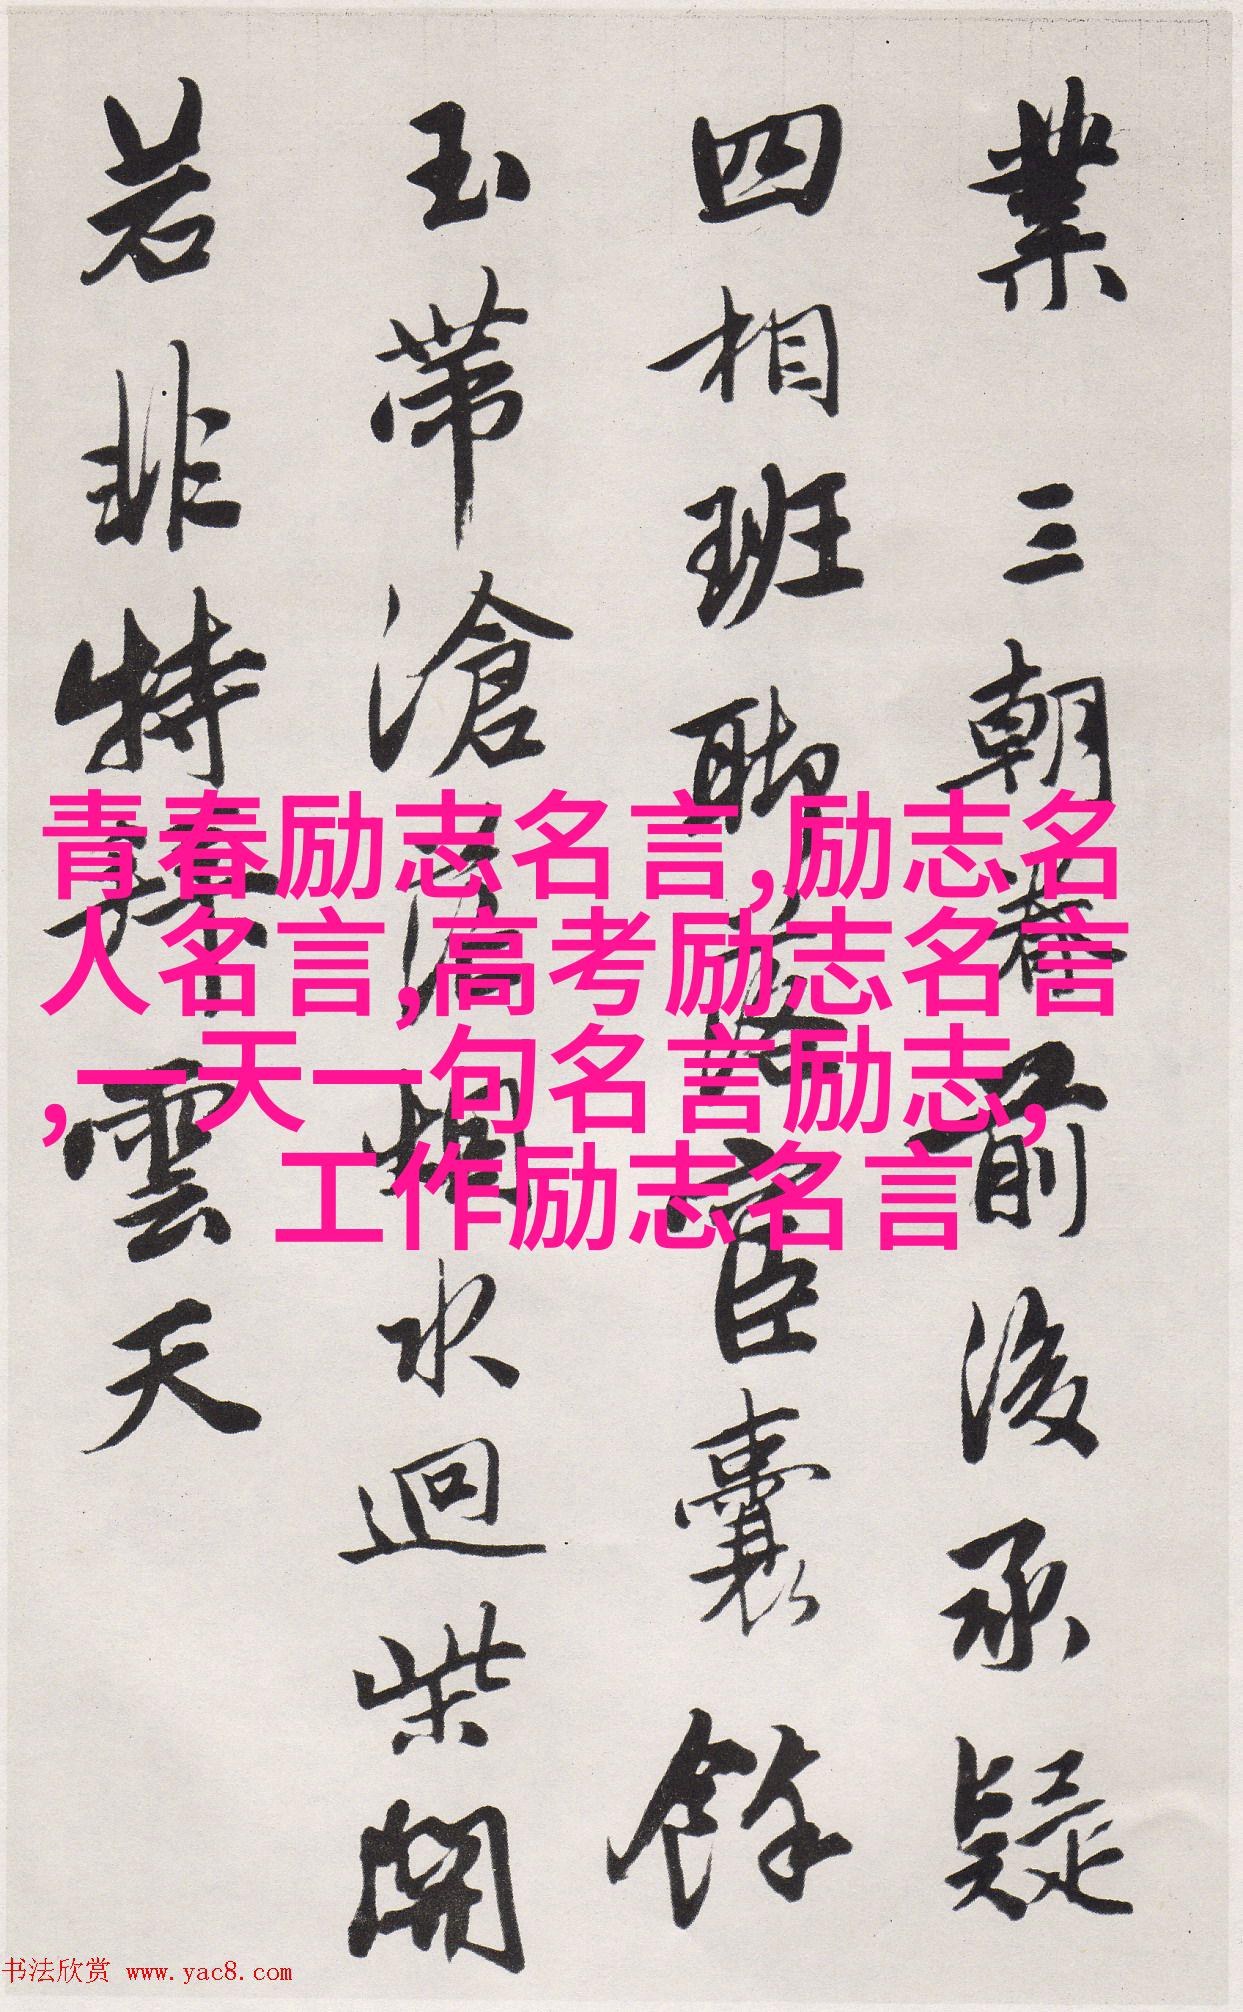 業三朝耆前後承疑
四相班聯
宦囊餘
玉帶滄
水迴柴開
若非特
雲天
青春励志名言,励志名
人名言,高考励志名言
,一天一句名言励志,
工作励志名言
书法欣赏 www.yac8.com